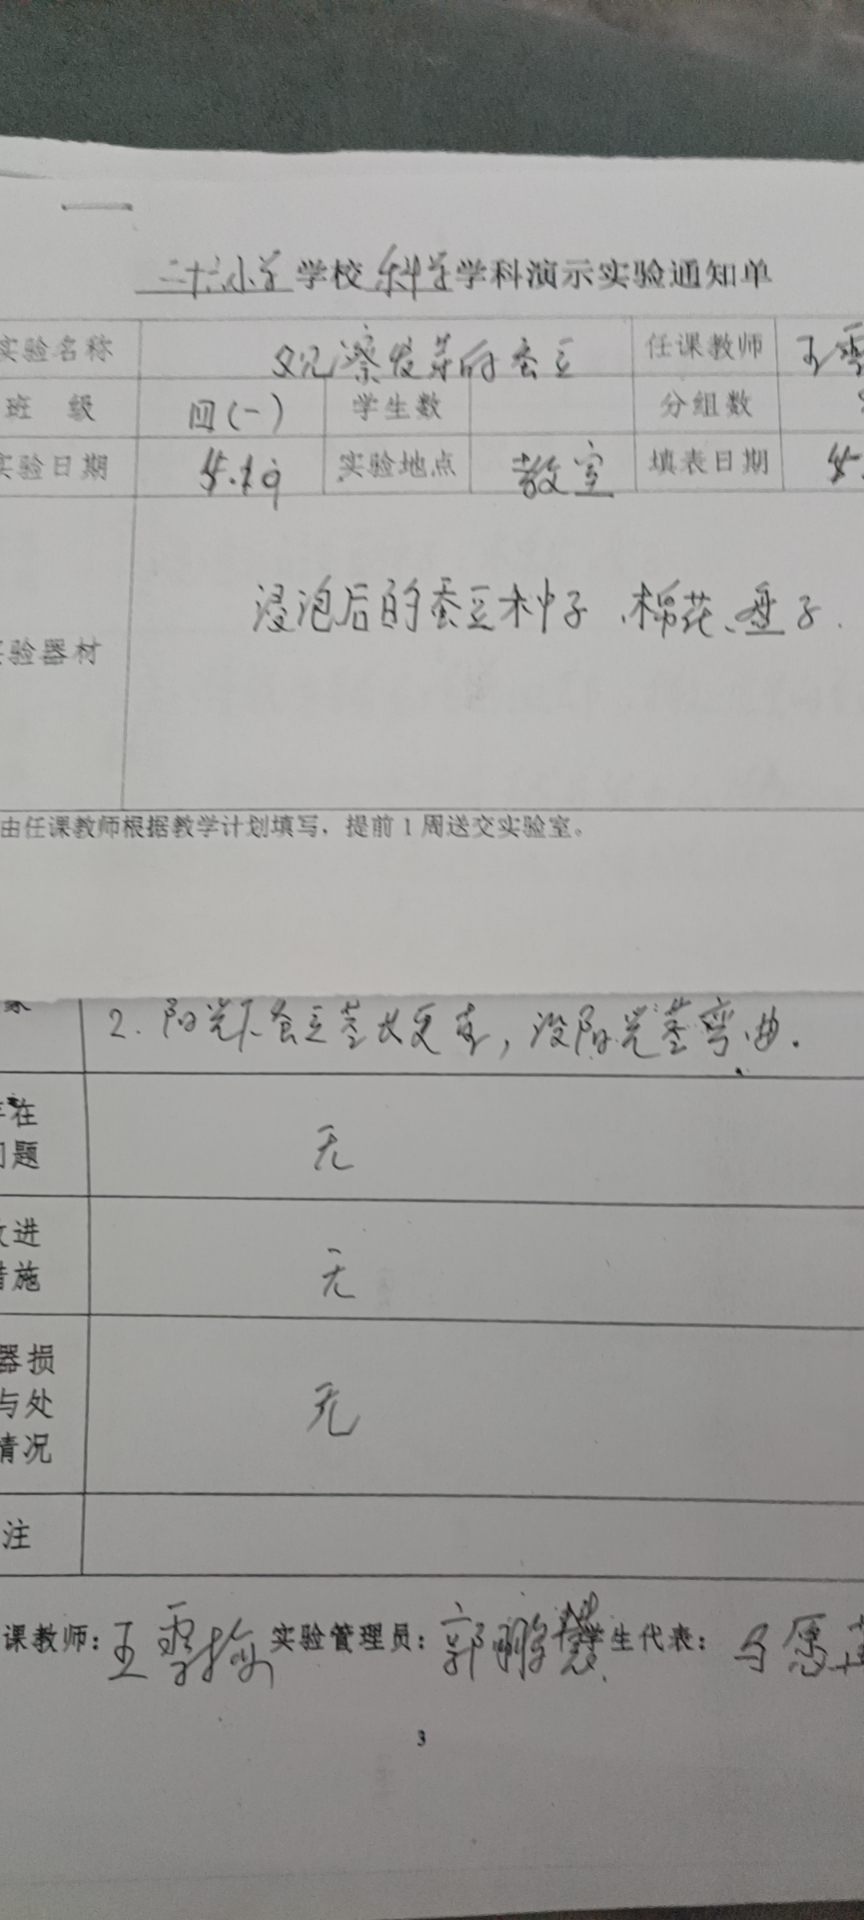 二十六小学学校科学学科演示实验通知单
实验名称 观察发芽的蚕豆 任课教师 王雪
班 级 四(一) 学生数 分组数
实验日期 实验地点 教室 填表日期
验器材 浸泡后的蚕豆种子、棉花、盒子.
由任课教师根据教学计划填写，提前1周送交实验室。
2. 阳光下蚕豆茎长更直，没阳光茎弯曲.
存在
问题 无
改进
措施 无
器损
与处
情况 无
注
课教师：王雪梅 实验管理员：郭鹏 学生代表：马愿
3